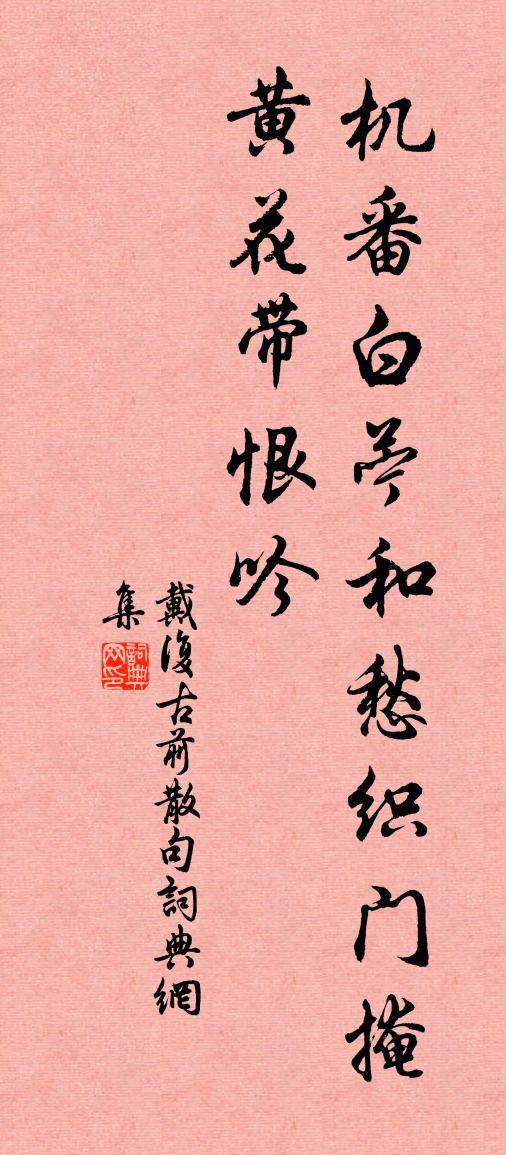 机番白苎和愁织门掩
黄花带恨吟
戴復古前散句詞典網
集
詞典
网印